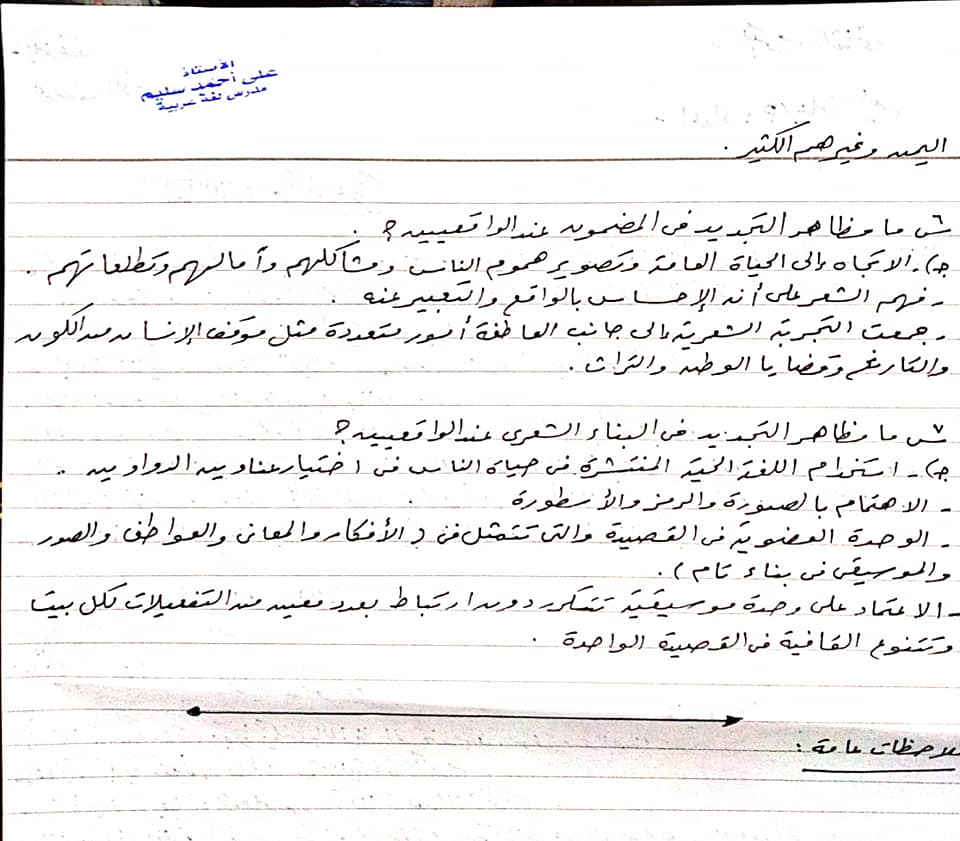 الأستاذ
على أحمد سليم
مدرس لغة عربية
اليمن وغيرهم الكثير .
س٦ ما مظاهر التجديد فى المضمون عند الواقعيين ؟
جـ) - الاتجاه إلى الحياة العامة وتصوير هموم الناس ومشاكلهم وآمالهم وتطلعاتهم .
- فهم الشعر على أنه الإحساس بالواقع والتعبير عنه .
- جمعت التجربة الشعرية إلى جانب العاطفة أمور متعددة مثل موقف الإنسان من الكون
والتاريخ وقضايا الوطن والتراث .
س٧ ما مظاهر التجديد فى البناء الشعرى عند الواقعيين ؟
جـ) - استخدام اللغة الحية المنتشرة فى حياة الناس فى اختيار عناوين الدواوين .
- الاهتمام بالصورة والرمز والأسطورة
- الوحدة العضوية فى القصيدة والتى تتمثل فى ( الأفكار والمعانى والعواطف والصور
والموسيقى فى بناء تام ) .
- الاعتماد على وحدة موسيقية تتكرر دون ارتباط بعدد معين من التفعيلات لكل بيت
وتتنوع القافية فى القصيدة الواحدة .
ملاحظات عامة :